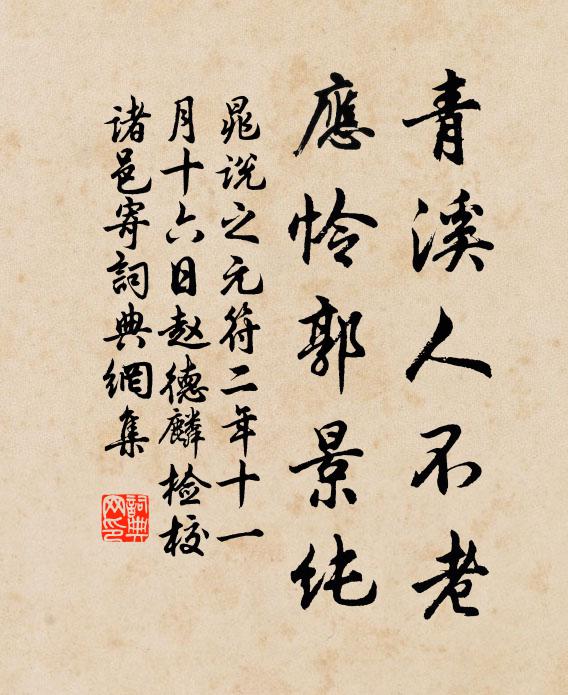 青溪人不老
應怜郭景纯
晁说之元符二年十一
月十六日赵德麟检校
诸邑寄詞典網集
詞典
网印